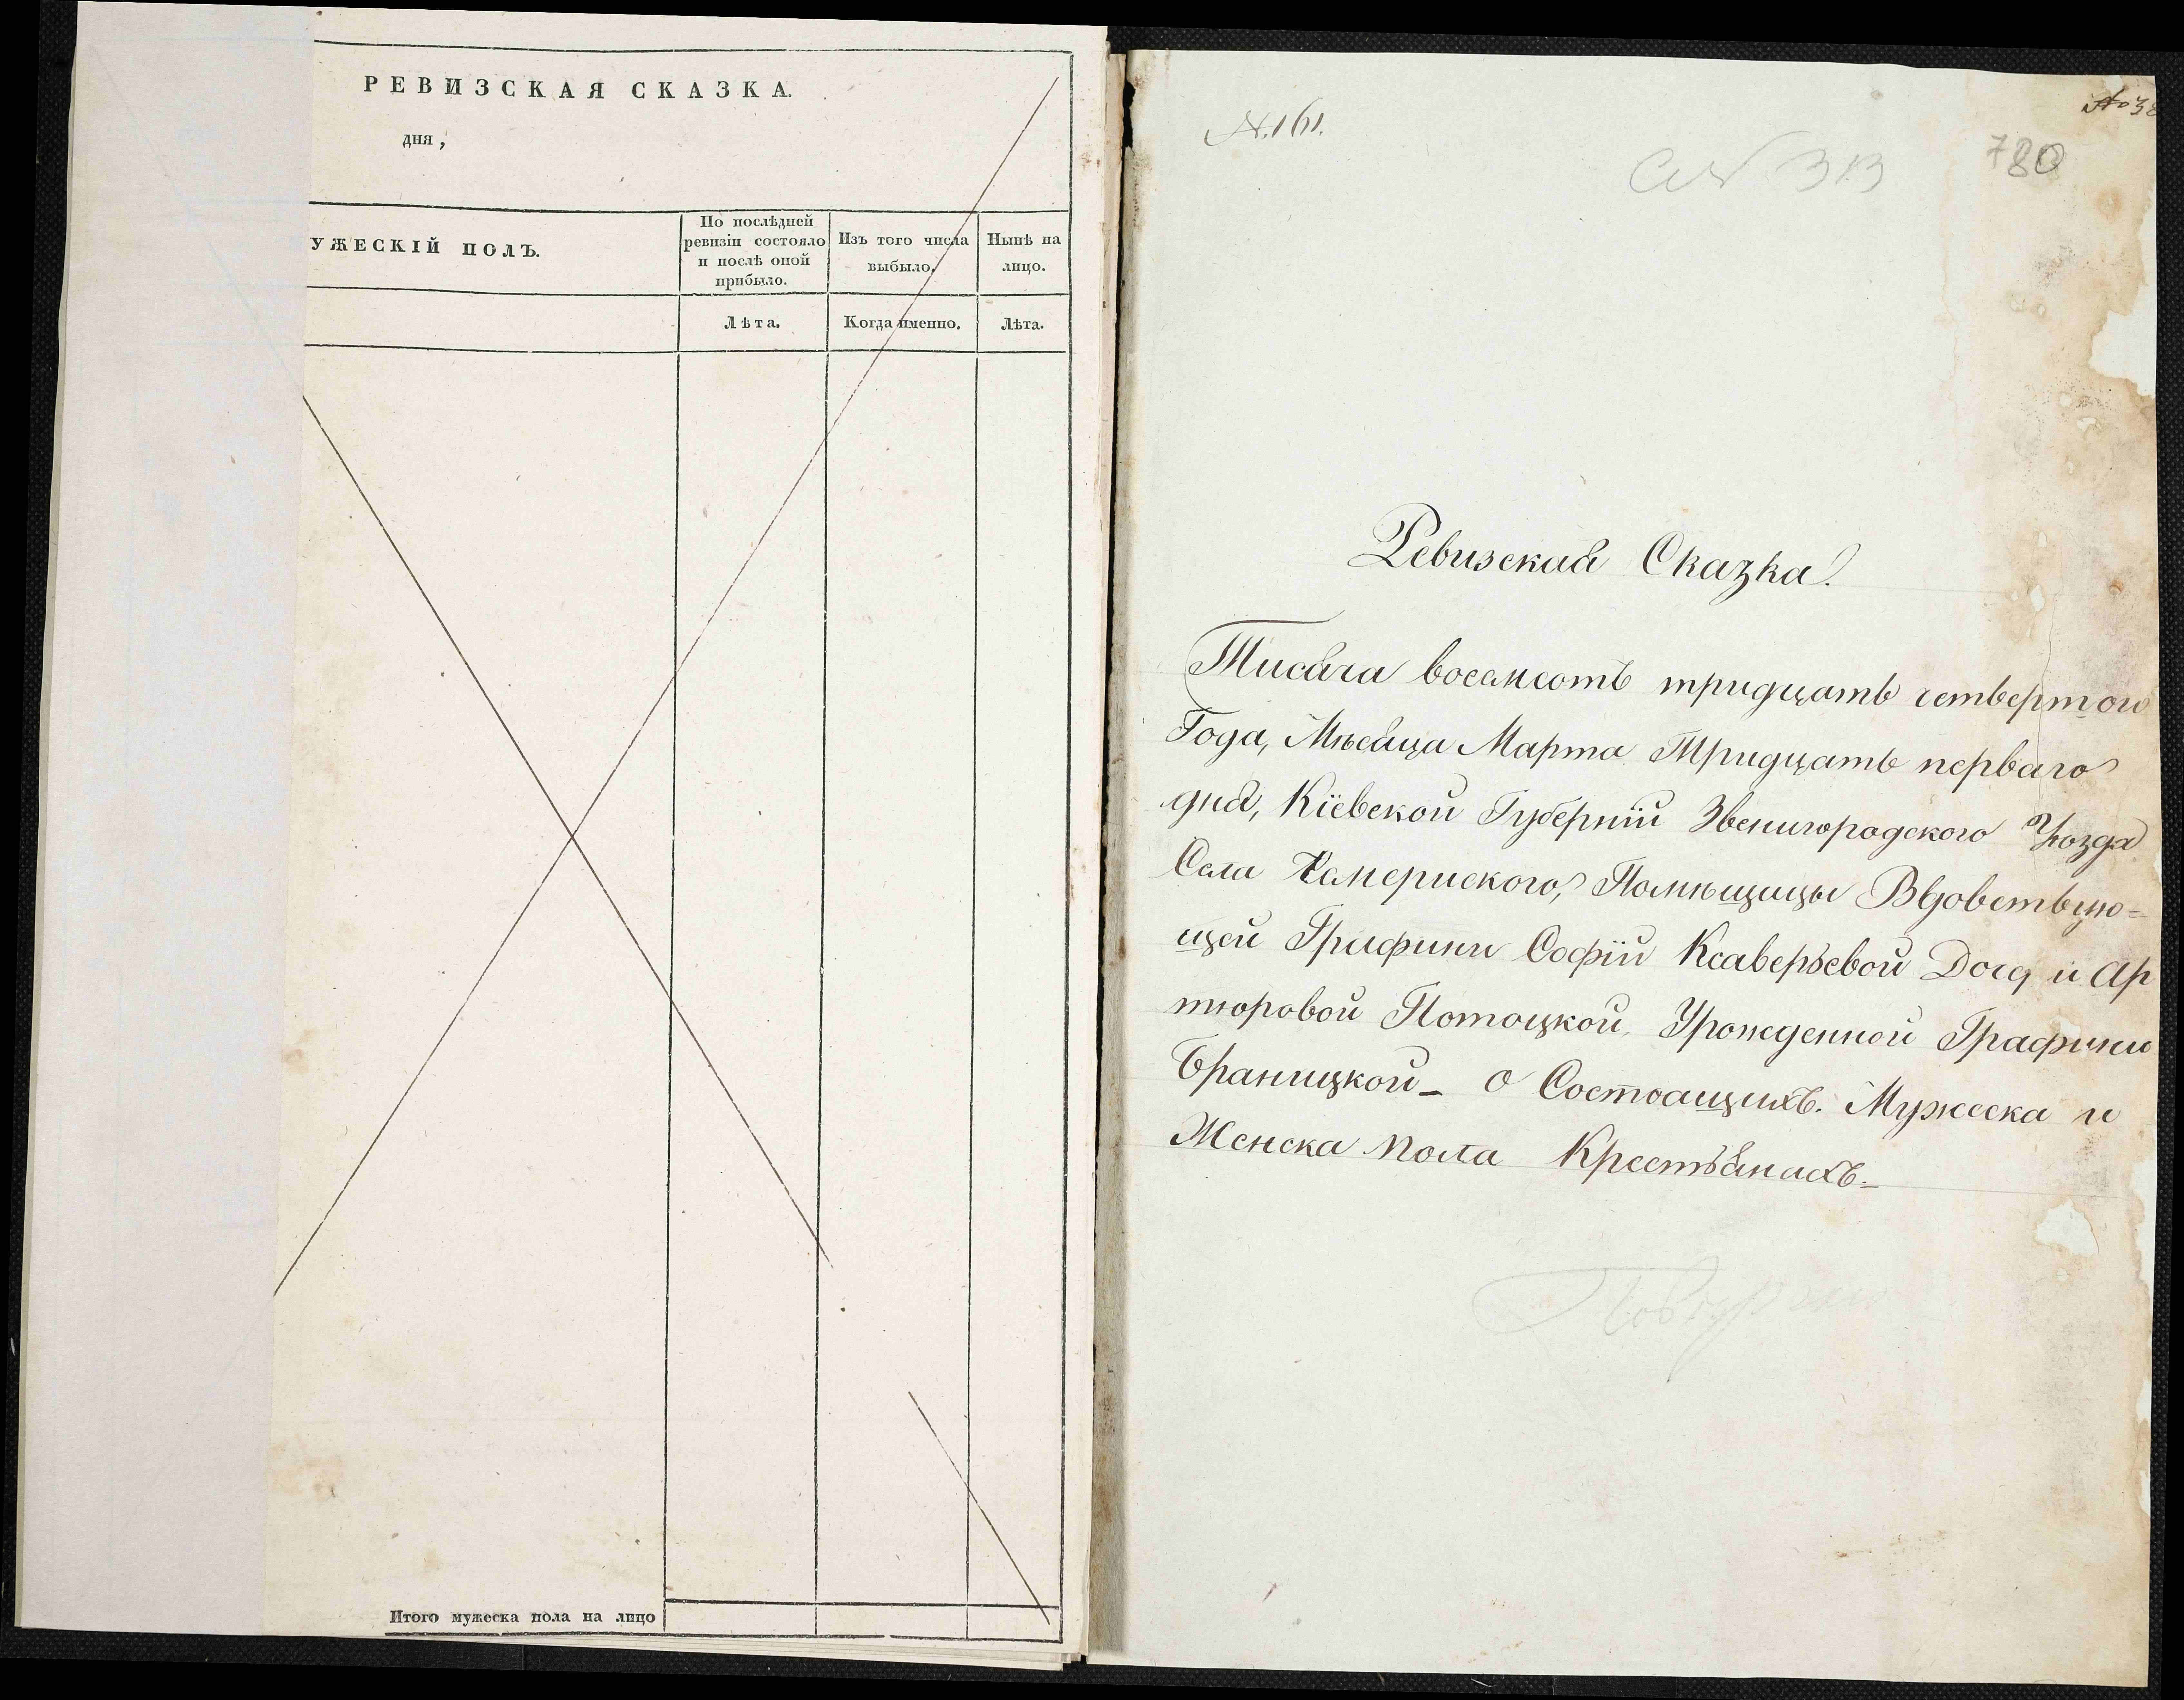 РЕВИЗСКАЯ СКАЗКА.
дня,
УЖЕСКІЙ ПОЛЪ.
По послѣдней
ревизіи состояло
и послѣ оной
прибыло.
Изъ того числа
выбыло.
Нынѣ на
лицо.
Лѣта.
Когда именно.
Лѣта.
Итого мужеска пола на лицо
N. 161.
780
313
Ревизская Сказка.
Тисяча восемсотъ тридцать четвертого
Года, Мѣсяца Марта Тридцать перваго
дня, Кіевской Губерніи Звенигородского Уѣзда
Села Помѣщицы Вдовствую=
щей Графини Софіи Ксаверьевой и Ар
тюровой Потоцкой, Урожденной Графини
Браницкой_ о Состоящихъ. Мужеска и
Женска пола Крестьянахъ.=